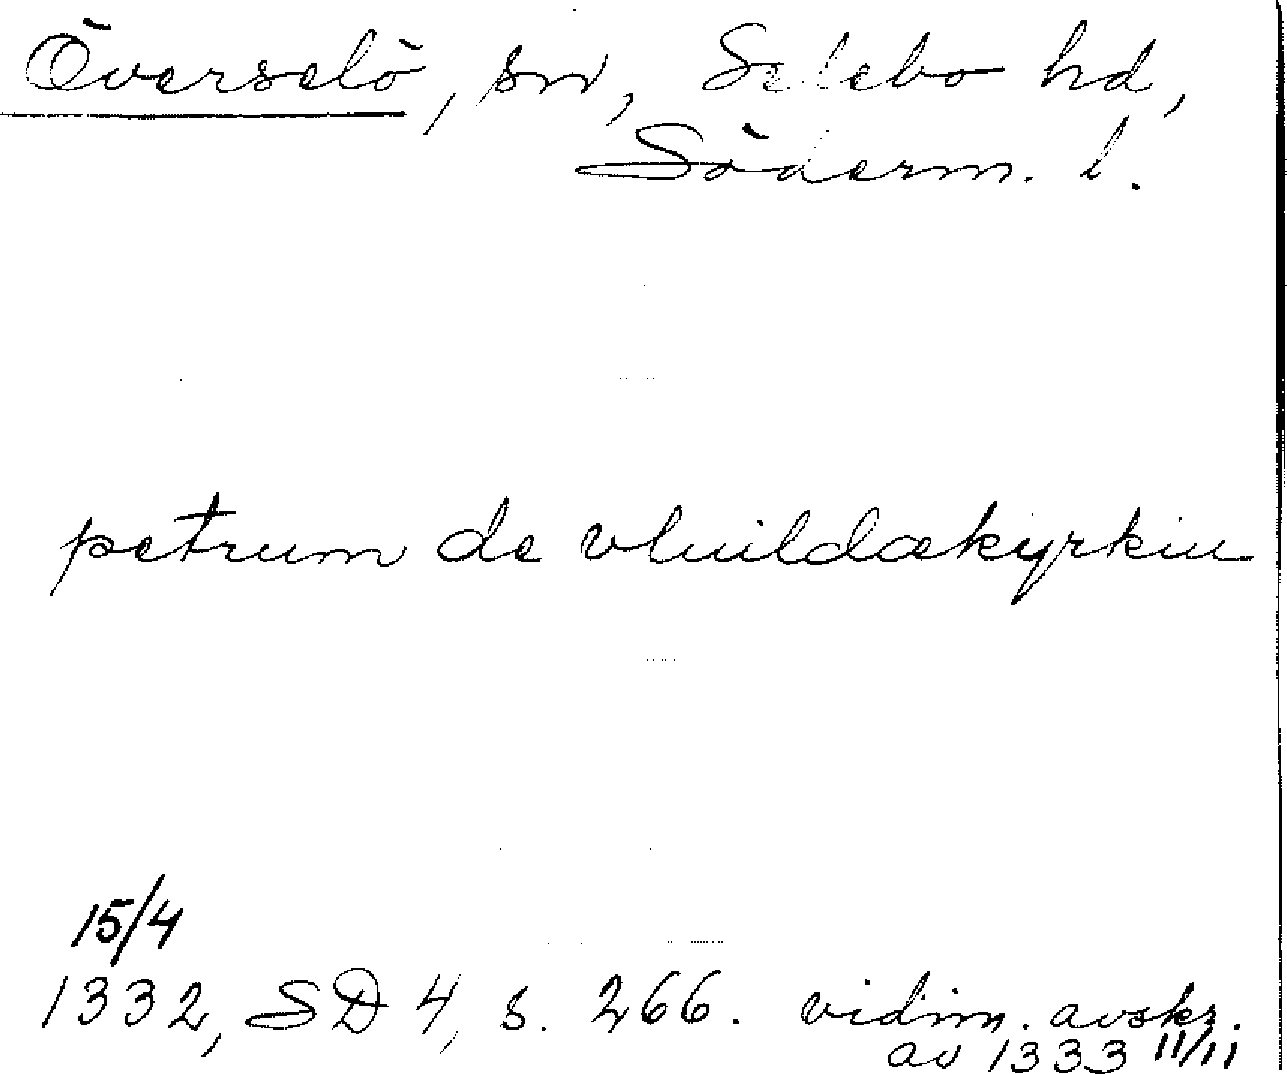 Överselö, sn, Selebo hd,
Söderm. l.
petrum de vluildækyrkiu
15/4
1332, SD 4, s. 266. vidim. avskr.
av 1333 11/11